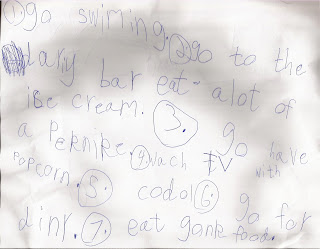 1. go swiming. 2 go to the
dariy bar eat alot of
ise cream. 3. go have
a Peknike. 4 wach TV with
POPcorn. 5. codol 6. go for
dinr. 7. eat gonk food.